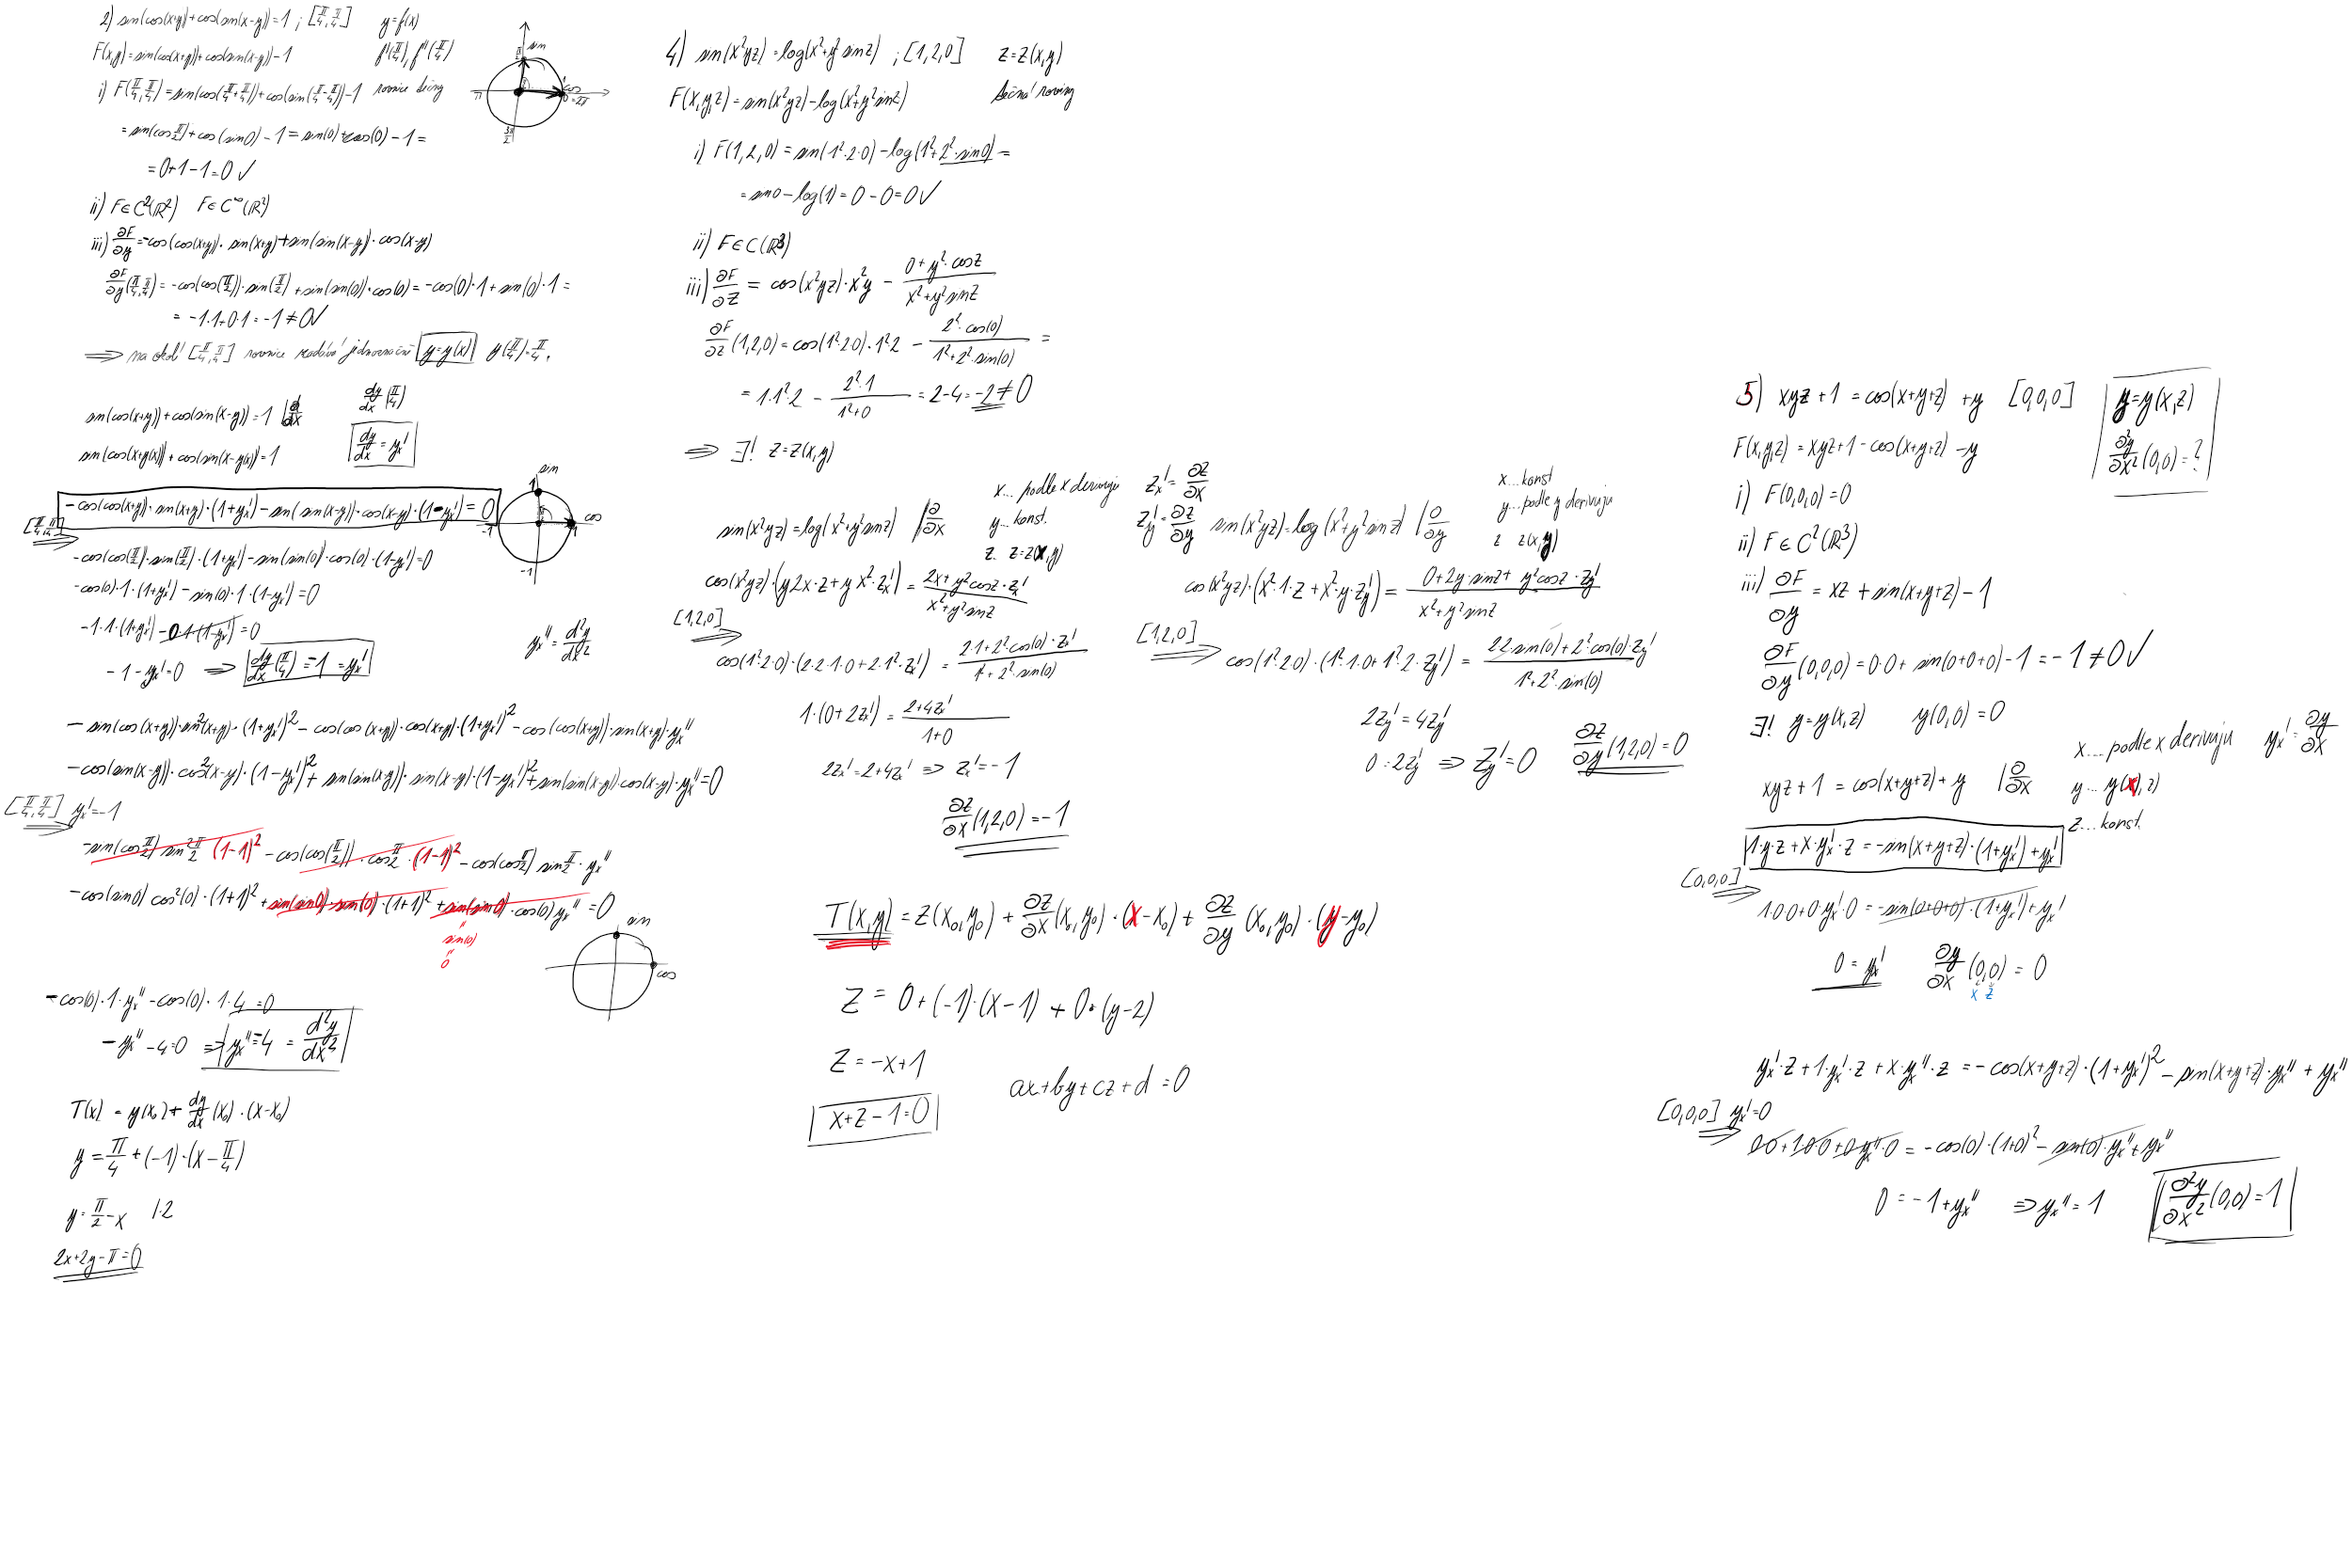 2) sin(cos(x+y))+cos(sin(x-y))=1 ; [π/4, π/4]   y=f(x)
F(x,y)=sin(cos(x+y))+cos(sin(x-y))-1   f'(π/4), f''(π/4)
i) F(π/4, π/4)=sin(cos(π/4+π/4))+cos(sin(π/4-π/4))-1   rovnice tečny
=sin(cos π/2)+cos(sin0)-1=sin(0)+cos(0)-1=
=0+1-1=0 ✓
ii) F∈C²(ℝ²)   F∈C^∞(ℝ²)
iii) ∂F/∂y=-cos(cos(x+y))·sin(x+y)+sin(sin(x-y))·cos(x-y)
∂F/∂y(π/4, π/4)=-cos(cos(π/2))·sin(π/2)+sin(sin(0))·cos(0)=-cos(0)·1+sin(0)·1=
=-1·1+0·1=-1≠0✓
⇒ na okolí [π/4, π/4] rovnice zadává jednoznačně y=y(x)   y(π/4)=π/4.
sin(cos(x+y))+cos(sin(x-y))=1 | d/dx   dy/dx(π/4)
sin(cos(x+y(x)))+cos(sin(x-y(x)))=1   dy/dx=yₓ'
-cos(cos(x+y))·sin(x+y)·(1+yₓ')-sin(sin(x-y))·cos(x-y)·(1-yₓ')=0
[π/4, π/4] ⇒
-cos(cos(π/2))·sin(π/2)·(1+yₓ')-sin(sin(0))·cos(0)·(1-yₓ')=0
-cos(0)·1·(1+yₓ')-sin(0)·1·(1-yₓ')=0
-1·1·(1+yₓ')-0·1·(1-yₓ')=0
-1-yₓ'=0 ⇒ dy/dx(π/4)=-1=yₓ'   yₓ''=d²y/dx²
-sin(cos(x+y))·sin²(x+y)·(1+yₓ')²-cos(cos(x+y))·cos(x+y)·(1+yₓ')²-cos(cos(x+y))·sin(x+y)·yₓ''
-cos(sin(x-y))·cos²(x-y)·(1-yₓ')²+sin(sin(x-y))·sin(x-y)·(1-yₓ')²+sin(sin(x-y))·cos(x-y)·yₓ''=0
[π/4, π/4] yₓ'=-1 ⇒
-sin(cos π/2) sin² π/2 (1-1)²-cos(cos(π/2))·cos π/2·(1-1)²-cos(cos π/2) sin π/2·yₓ''
-cos(sin0) cos²(0)·(1+1)²+sin(sin0)·sin(0)·(1+1)²+sin(sin0)·cos(0)yₓ''=0
sin(0)
0
-cos(0)·1·yₓ''-cos(0)·1·4=0
-yₓ''-4=0 ⇒ yₓ''=-4=d²y/dx²
T(x)=y(x₀)+dy/dx(x₀)·(x-x₀)
y=π/4+(-1)·(x-π/4)
y=π/2-x   |·2
2x+2y-π=0
sin
π/2
π
cos
0=2π
3π/2
sin
1
-1
1
cos
-1
sin
cos
4) sin(x²yz)=log(x²+y² sinz) ; [1,2,0]   z=z(x,y)
F(x,y,z)=sin(x²yz)-log(x²+y²sinz)   tečná rovina
i) F(1,2,0)=sin(1²·2·0)-log(1²+2²·sin0)=
=sin0-log(1)=0-0=0✓
ii) F∈C(ℝ³)
iii) ∂F/∂z=cos(x²yz)·x²y-(0+y²·cosz)/(x²+y²sinz)
∂F/∂z(1,2,0)=cos(1²·2·0)·1²·2-(2²·cos(0))/(1²+2²·sin(0))=
=1·1²·2-(2²·1)/(1²+0)=2-4=-2≠0
⇒ ∃! z=z(x,y)
x... podle x derivuju   zₓ'=∂z/∂x
sin(x²yz)=log(x²+y²sinz) |∂/∂x   y...konst.
z. z=z(x,y)
cos(x²yz)·(y2x·z+yx²·zₓ')=(2x+y²cosz·zₓ')/(x²+y²sinz)
[1,2,0] ⇒
cos(1²·2·0)·(2·2·1·0+2·1²·zₓ')=(2·1+2²·cos(0)·zₓ')/(1²+2²·sin(0))
1·(0+2zₓ')=(2+4zₓ')/(1+0)
2zₓ'=2+4zₓ' ⇒ zₓ'=-1
∂z/∂x(1,2,0)=-1
x...konst
z_y'=∂z/∂y   sin(x²yz)=log(x²+y²sinz) |∂/∂y   y...podle y derivuju
z z(x,y)
cos(x²yz)·(x²·1·z+x²·y·z_y')=(0+2y·sinz+y²cosz·z_y')/(x²+y²sinz)
[1,2,0] ⇒
cos(1²·2·0)·(1²·1·0+1²·2·z_y')=(2·2·sin(0)+2²·cos(0)·z_y')/(1²+2²·sin(0))
2z_y'=4z_y'
0=2z_y' ⇒ z_y'=0   ∂z/∂y(1,2,0)=0
T(x,y)=z(x₀,y₀)+∂z/∂x(x₀,y₀)·(x-x₀)+∂z/∂y(x₀,y₀)·(y-y₀)
z=0+(-1)·(x-1)+0·(y-2)
z=-x+1
ax+by+cz+d=0
x+z-1=0
5) xyz+1=cos(x+y+z)+y   [0,0,0]   y=y(x,z)
F(x,y,z)=xyz+1-cos(x+y+z)-y   ∂²y/∂x²(0,0)=?
i) F(0,0,0)=0
ii) F∈C²(ℝ³)
iii) ∂F/∂y=xz+sin(x+y+z)-1
∂F/∂y(0,0,0)=0·0+sin(0+0+0)-1=-1≠0✓
∃! y=y(x,z)   y(0,0)=0
x... podle x derivuju   yₓ'=∂y/∂x
xyz+1=cos(x+y+z)+y   |∂/∂x   y... y(x,z)
z...konst.
1·y·z+x·yₓ'·z=-sin(x+y+z)·(1+yₓ')+yₓ'
[0,0,0] ⇒
1·0·0+0·yₓ'·0=-sin(0+0+0)·(1+yₓ')+yₓ'
0=yₓ'   ∂y/∂x(0,0)=0
x z
yₓ'·z+1·yₓ'·z+x·yₓ''·z=-cos(x+y+z)·(1+yₓ')²-sin(x+y+z)·yₓ''+yₓ''
[0,0,0] yₓ'=0 ⇒
0·0+1·0·0+0·yₓ''·0=-cos(0)·(1+0)²-sin(0)·yₓ''+yₓ''
0=-1+yₓ'' ⇒ yₓ''=1   ∂²y/∂x²(0,0)=1